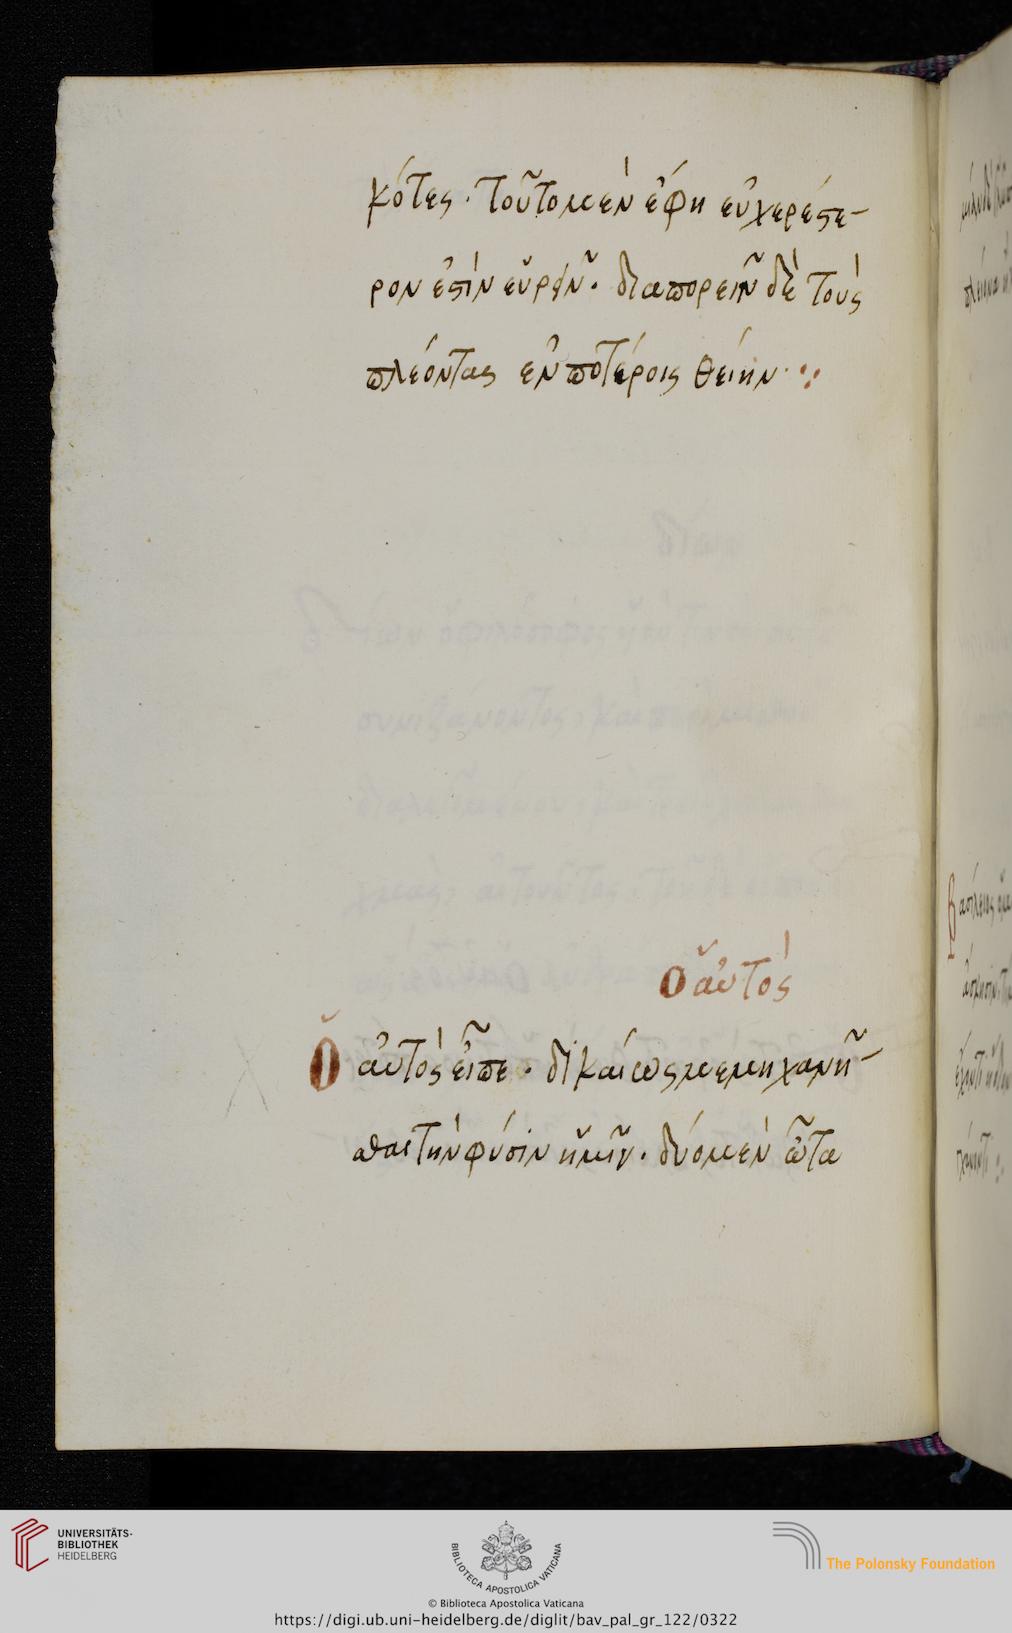 κότες. τοῦτο μὲν ἔφη εὐχερέστε-
ρον ἐστὶν εὑρεῖν. διαπορεῖν δὲ τοὺς
πλέοντας ἐν ποτέροις θείην:
Ὁ αὐτὸς
Ὁ αὐτὸς εἶπε. δικαίως μεμηχανῆ-
σθαι τὴν φύσιν ἡμῖν. δύο μὲν ὦτα
UNIVERSITÄTS-
BIBLIOTHEK
HEIDELBERG
BIBLIOTECA APOSTOLICA VATICANA
The Polonsky Foundation
© Biblioteca Apostolica Vaticana
https://digi.ub.uni-heidelberg.de/diglit/bav_pal_gr_122/0322